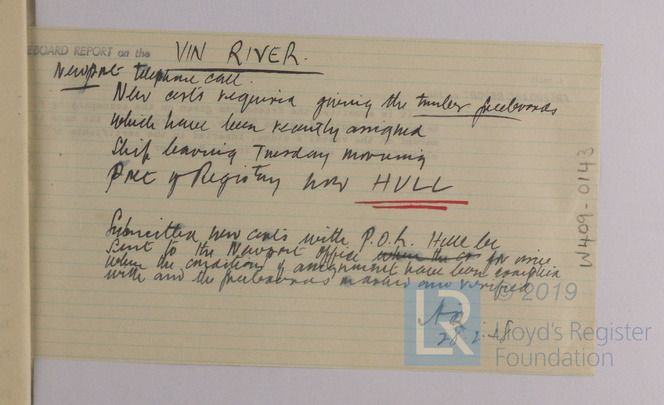 EBOARD REPORT on the VIN RIVER.
Newport telephone call.
New certs required giving the timber freeboards
which have been recently assigned
Ship leaving Tuesday morning
Port of Registry now HULL
Submitted new certs with P.O.R. Hull be
sent to the Newport office when the co for issue
when the conditions of assignment have been complied
with and the freeboards marked and verified
28.2.48
W409-0143
© 2019
LR Lloyd's Register
Foundation